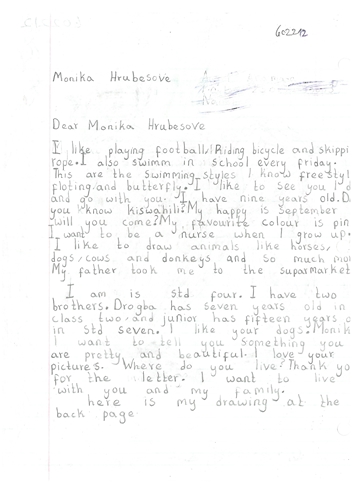 602212
Monika Hrubesove
Dear Monika Hrubesove
I like playing football, Riding bicycle and skippi
rope. I also swimm in school every friday.
This are the swimming styles I know freestyl
floting and butterfly. I like to see you I d
and go with you. I have nine years old. D
you know kiswahili? My happy is September
will you come? My favourite colour is pin
I want to be a nurse when I grow up.
I like to draw animals like horses,
dogs, cows and donkeys and so much mor
My father took me to the supamarket
I am is std four. I have two
brothers. Drogba has seven years old in
class two and junior has fifteen years o
in std seven. I like your dogs. Monik
I want to tell you something you
are pretty and beautiful. I love your
pictures. Where do you live? Thank yo
for the letter. I want to live
with you and my family.
here is my drawing at the
back page